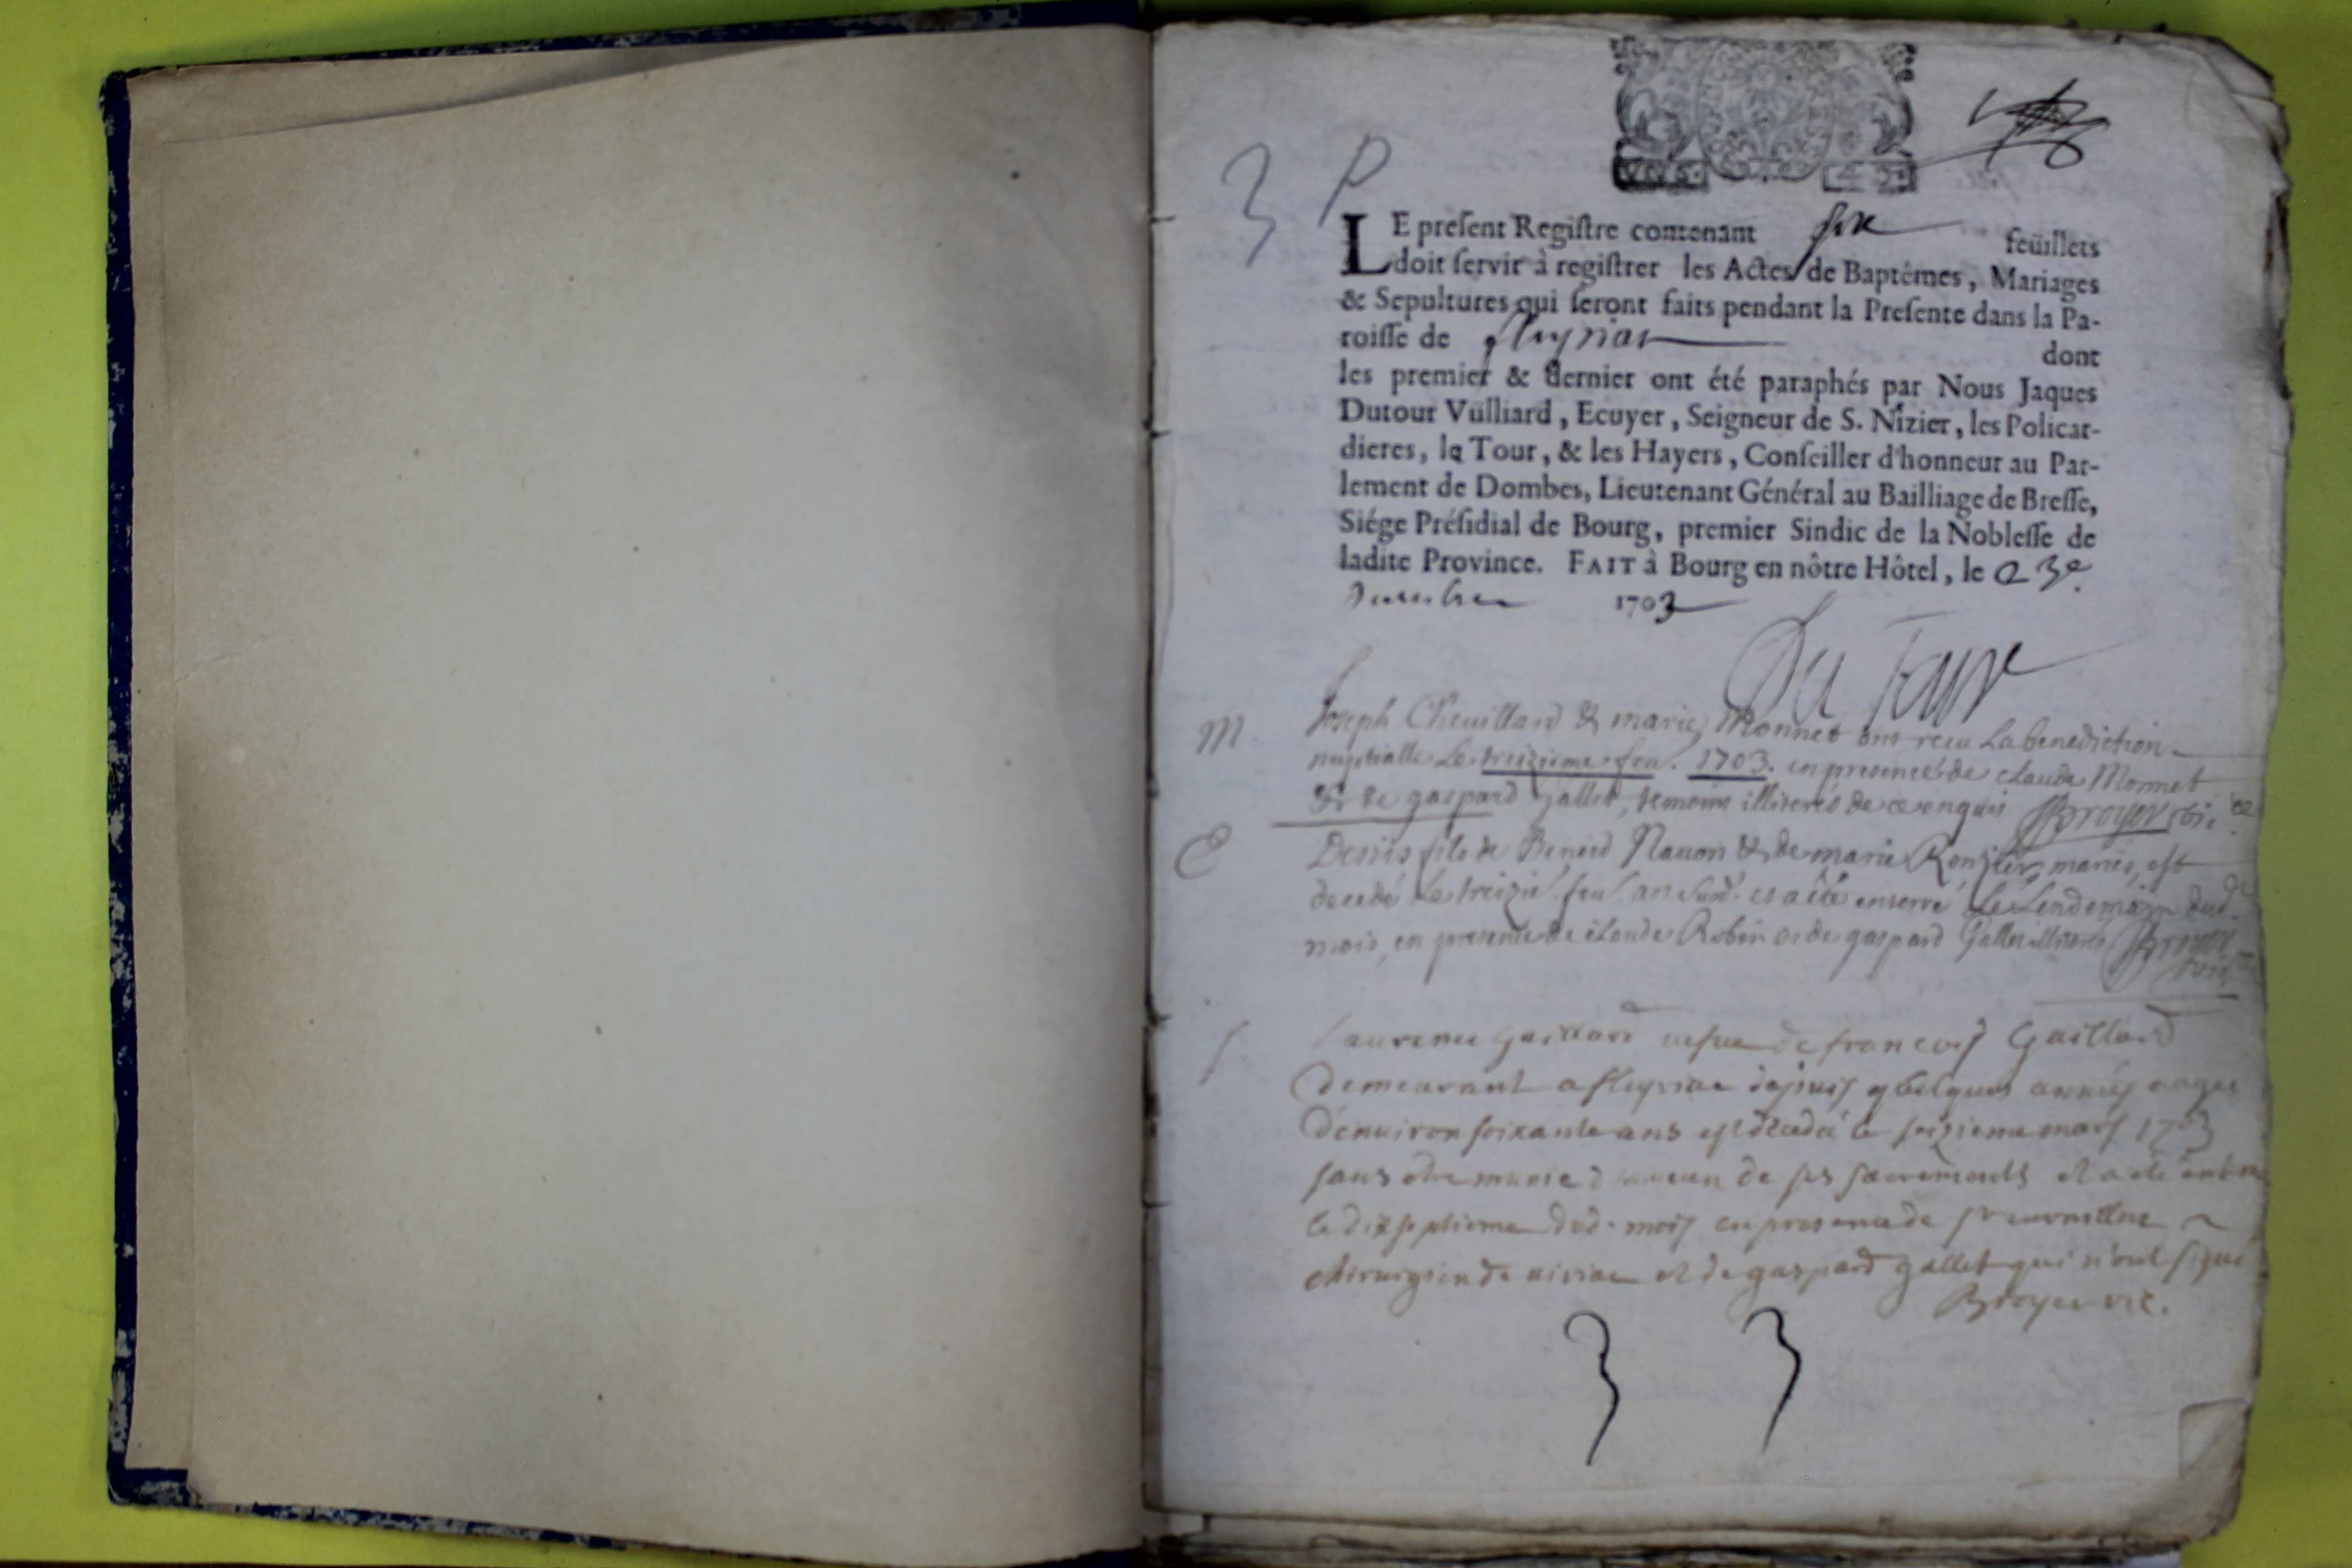 3 P
LE preſent Regiſtre contenant six feüillets
doit ſervir à regiſtrer les Actes de Baptêmes, Mariages
& Sepultures qui ſeront faits pendant la Preſente dans la Pa-
roiſſe de fleyriat dont
les premier & dernier ont été paraphés par Nous Jaques
Dutour Vülliard, Ecuyer, Seigneur de S. Nizier, les Policar-
dieres, la Tour, & les Hayers, Conſeiller d'honneur au Par-
lement de Dombes, Lieutenant Général au Bailliage de Breſſe,
Siége Préſidial de Bourg, premier Sindic de la Nobleſſe de
ladite Province. FAIT à Bourg en nôtre Hôtel, le 23e
1703
Du Tour
M Joseph Chevillard & marie Monnet ont receu La benediction
nuptialle Le treizieme feu. 1703. en presence de claude Monnet
& de gaspard gallet, temoins illiterés de ce enquis Broyer
Denis fils de Benoid & de marie mariés, est
decedé Le treizie. feu. an Susd. et a été enterré Le Lendemain dud.
mois, en presence de claude Robin et de gaspard Gallet illiterés Broyer
Laurence gaillard vefve de francois Gaillard
demeurant a fleyriac depuis quelques années aagee
d'environ soixante ans est decedée le seizieme mars 1703
sans etre munie d'aucun de ses sacrements et a été
le dixseptieme dud. mois en presence de
chirurgien de viriac et de gaspard gallet qui n'ont signé
Broyer vic.
3 3